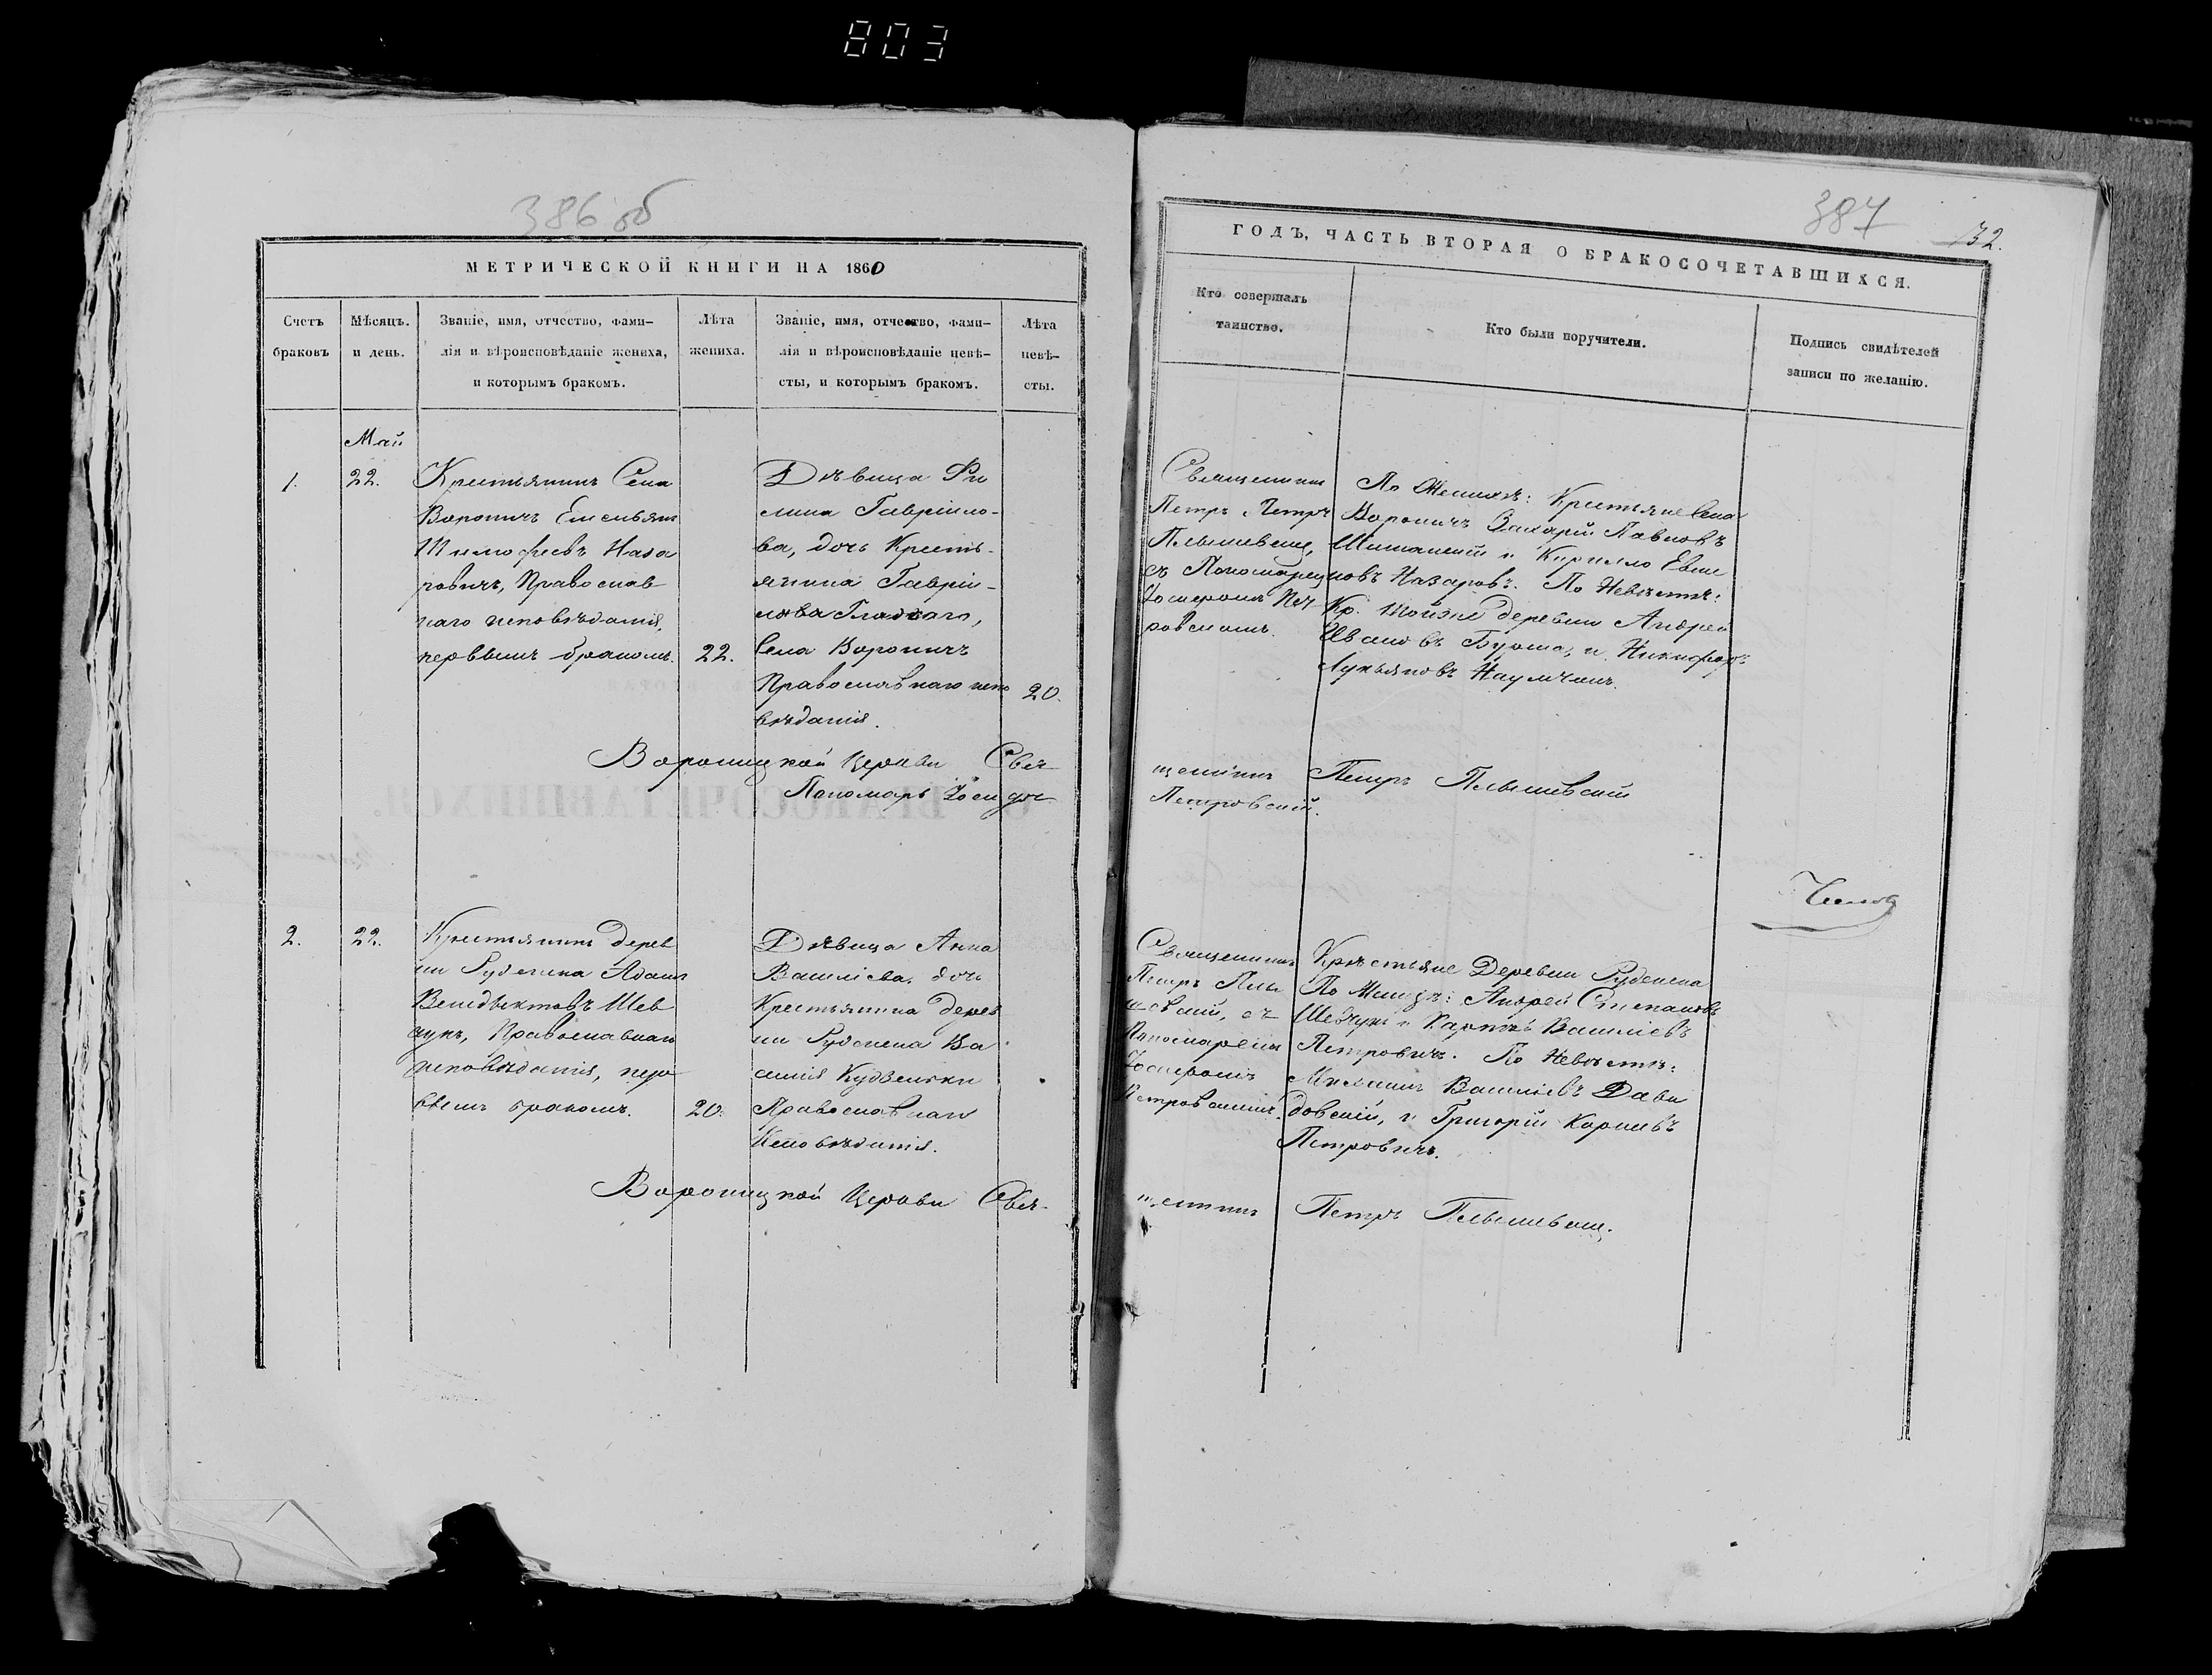 803
386 об
МЕТРИЧЕСКОЙ КНИГИ НА 1860
Счетъ
браковъ
Мѣсяцъ.
и день.
Званіе, имя, отчество, фами-
лія и вѣроисповѣданіе жениха,
и которымъ бракомъ.
Лѣта
жениха.
Званіе, имя, отчество, фами-
лія и вѣроисповѣданіе невѣ-
сты, и которымъ бракомъ.
Лѣта
невѣ-
сты.
Май
1.
22.
Крестьянинъ Села
Вороничъ Емельянъ
Тимофеевъ Наза
ровичъ, Православ
наго исповѣданія,
первымъ бракомъ.
22.
Дѣвица
Гавріило-
ва, дочь Кресть-
янина Гаврі-
Гладкаго,
Села Вороничъ
Православнаго испо
вѣданія.
20.
Вороницкой Церкви Свя-
Пономарь
2.
22.
Крестьянинъ Дерев
ни Руденска Адамъ
Венедыктовъ Шев
чукъ, Православнаго
исповѣданія, пер
вымъ бракомъ.
20.
Дѣвица Анна
Василіева, дочь
Крестьянина дерев
ни Руденска Ва
силія
Православнаго
Исповѣданія.
Вороницкой Церкви Свя-
387
132.
ГОДЪ, ЧАСТЬ ВТОРАЯ О БРАКОСОЧЕТАВШИХСЯ.
Кто совершалъ
таинство.
Кто были поручители.
Подпись свидѣтелей
записи по желанію.
Священникъ
Петръ
съ Пономаремъ
Пет-
ровскимъ.
По Женихѣ: Крестьяне Села
Вороничъ Захарій Павловъ
и Кирилло Евли
повъ Назаровъ. По Невѣстѣ:
Кр. тойже деревни Андрей
Ивановъ и Никифоръ
Лукьяновъ
щенникъ Петръ
Петровскій.
Священникъ
Петръ
съ
Пономаремъ
Петровскимъ.
Крестьяне Деревни Руденска
По Женихѣ: Андрей Степановъ
Шевчукъ и Карпъ Василіевъ
Петровичъ. По Невѣстѣ:
Василіевъ Дави
довскій, и Григорій
Петровичъ.
щенникъ Петръ